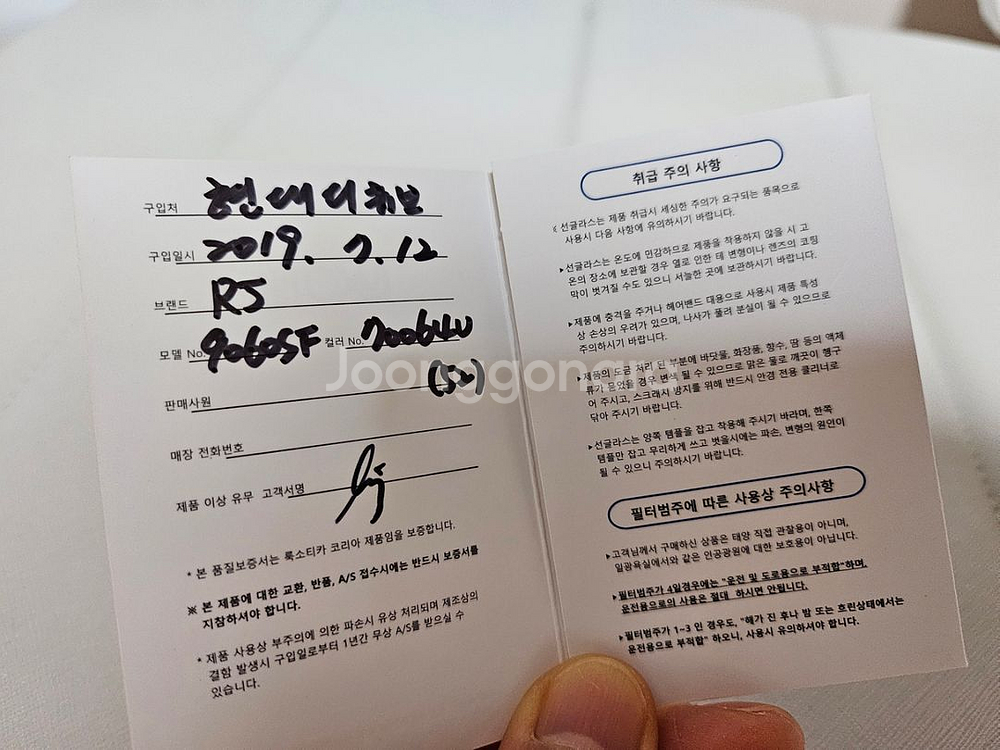 구입처 현대디큐브
구입일시 2019. 7. 12
브랜드 RJ
모델 No. 9060SF 컬러 No. 70064U
(52)
판매사원
매장 전화번호
제품 이상 유무 고객서명
* 본 품질보증서는 룩소티카 코리아 제품임을 보증합니다.
※ 본 제품에 대한 교환, 반품, A/S 접수시에는 반드시 보증서를
지참하셔야 합니다.
* 제품 사용상 부주의에 의한 파손시 유상 처리되며 제조상의
결함 발생시 구입일로부터 1년간 무상 A/S를 받으실 수
있습니다.
취급 주의 사항
선글라스는 제품 취급시 세심한 주의가 요구되는 품목으로
사용시 다음 사항에 유의하시기 바랍니다.
▸선글라스는 온도에 민감하므로 제품을 착용하지 않을 시 고
온의 장소에 보관할 경우 열로 인한 테 변형이나 렌즈의 코팅
막이 벗겨질 수도 있으니 서늘한 곳에 보관하시기 바랍니다.
▸제품에 충격을 주거나 헤어밴드 대용으로 사용시 제품 특성
상 손상의 우려가 있으며, 나사가 풀려 분실이 될 수 있으므로
주의하시기 바랍니다.
▸제품의 도금 처리 된 부분에 바닷물, 화장품, 향수, 땀 등의 액체
류가 묻었을 경우 변색 될 수 있으므로 맑은 물로 깨끗이 헹구
어 주시고, 스크래치 방지를 위해 반드시 안경 전용 클리너로
닦아 주시기 바랍니다.
▸선글라스는 양쪽 템플을 잡고 착용해 주시기 바라며, 한쪽
템플만 잡고 무리하게 쓰고 벗을시에는 파손, 변형의 원인이
될 수 있으니 주의하시기 바랍니다.
필터범주에 따른 사용상 주의사항
▸고객님께서 구매하신 상품은 태양 직접 관찰용이 아니며,
일광욕실에서와 같은 인공광원에 대한 보호용이 아닙니다.
▸필터범주가 4일경우에는 "운전 및 도로용으로 부적합"하며,
운전용으로의 사용은 절대 하시면 안됩니다.
▸필터범주가 1~3 인 경우도, "해가 진 후나 밤 또는 흐린상태에서는
운전용으로 부적합" 하오니, 사용시 유의하셔야 합니다.
Joonggonara